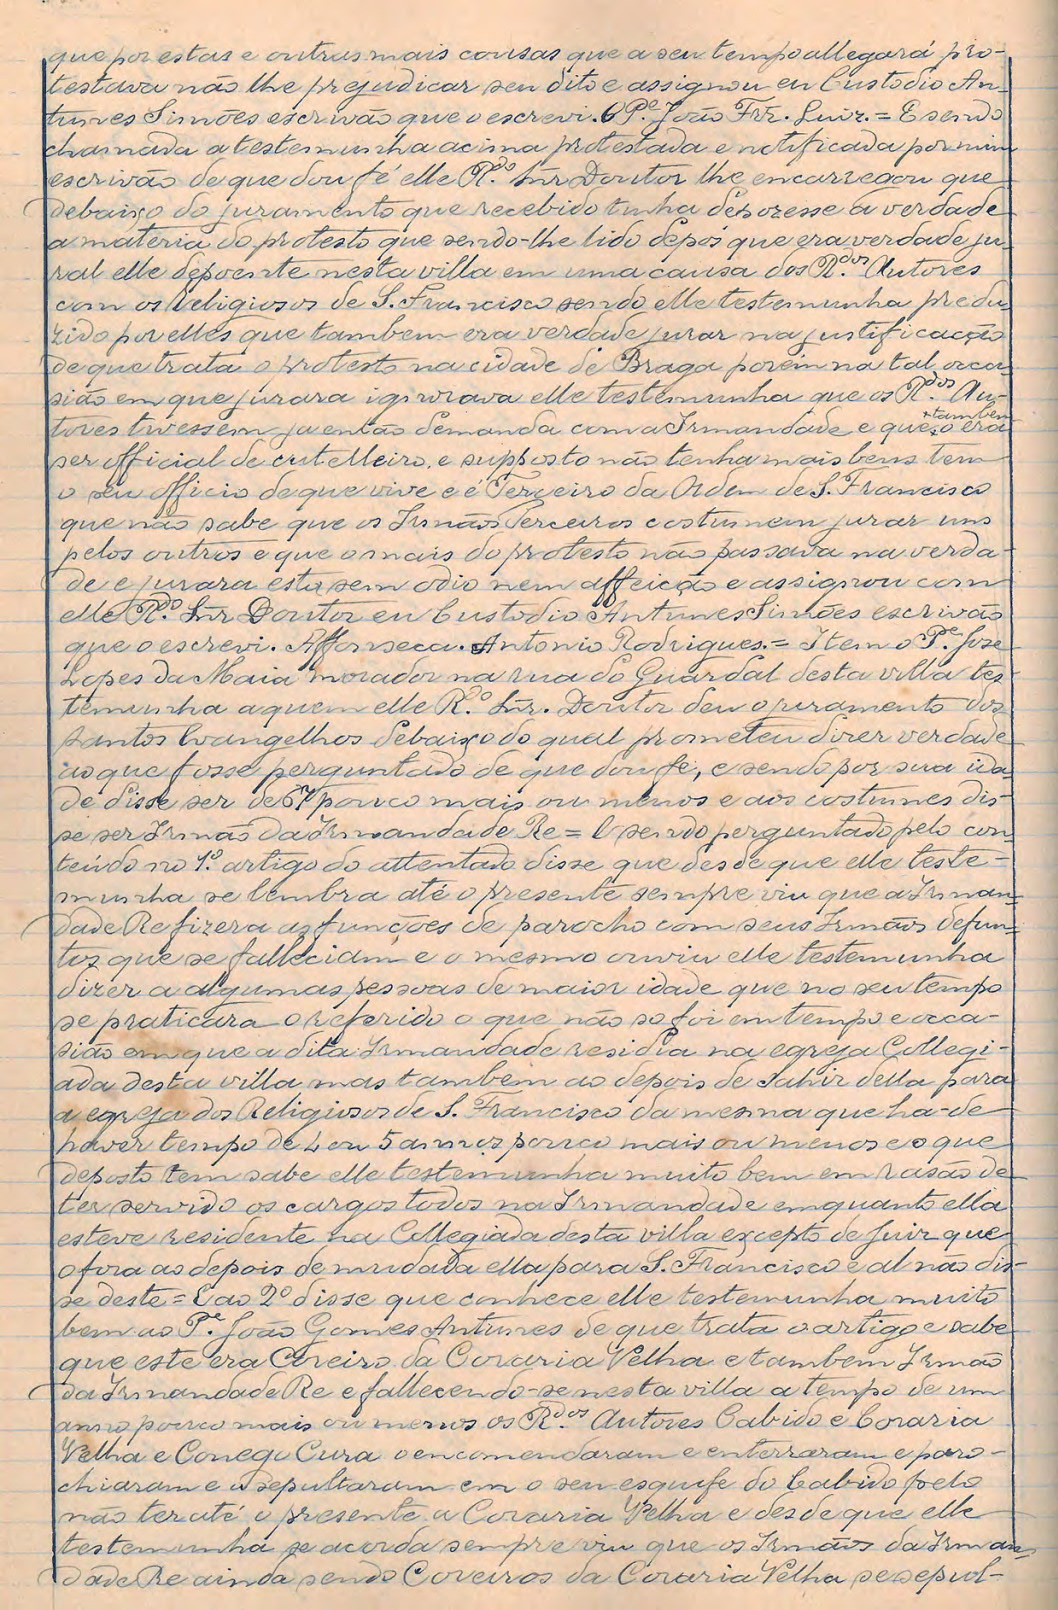 que por estas e outras mais cousas que a seu tempo allegará pro-
testava não lhe prejudicar seu dito e assignou eu Custodio An-
tunes Simões escrivão que o escrevi. O Pe. João Frz. Luiz. = E sendo
chamada a testemunha acima protestada e notificada por mim
escrivão de que dou fé elle R.do Snr Doutor lhe encarregou que
debaixo do juramento que recebido tinha dépozesse a verdade
a materia do protesto que sendo-lhe lido depôs que era verdade ju-
ral elle depoente nesta villa em uma causa dos R.dos Autores
com os Religiosos de S. Francisco sendo elle testemunha produ-
zido por elles que tambem era verdade jurar na justificacção
de que trata o protesto na cidade de Braga porém na tal occa-
sião em que jurara ignorava elle testemunha que os R.dos Au-
tores tivessem ja então demanda com a Irmandade e que o era tambem
ser official de cutelleiro, e supposto não tenha mais bens tem
o seu officio de que vive e é Terceiro da Ordem de S. Francisco
que não sabe que os Irmãos Terceiros costumem jurar uns
pelos outros e que o mais do protesto não passava na verda-
de e jurara esta sem odio nem affeição e assignou com
elle R.do Snr Doutor eu Custodio Antunes Simões escrivão
que o escrevi. Affonseca. Antonio Rodrigues. = Item o Pe. José
Lopes da Maia morador na rua do Guardal desta villa tes-
temunha a quem elle R.do Snr. Doutor deu o juramento dos
Santos Evangelhos debaixo do qual prometeu dizer verdade
ao que fosse perguntado de que dou fé, e sendo por sua ida-
de disse ser de 67 pouco mais ou menos e aos costumes dis-
se ser Irmão da Irmandade Re = E sendo perguntado pelo con-
teúdo no 1.º artigo do attentado disse que desde que elle teste-
munha se lembra até o presente sempre viu que a Irman-
dade Re fizera as funções de parocho com seus Irmãos defun-
tos que se falleciam e o mesmo ouviu elle testemunha
dizer a algumas pessoas de maior idade que no seu tempo
se praticara o referido o que não so foi em tempo e occa-
sião em que a dita Irmandade residia na egreja Collegi-
ada desta villa mas tambem ao depois de sahir della para
a egreja dos Religiosos de S. Francisco da mesma que ha-de
haver tempo de 4 ou 5 annos pouco mais ou menos e o que
deposto tem sabe elle testemunha muito bem em rasão de
ter servido os cargos todos na Irmandade emquanto ella
esteve residente na Collegiada desta villa excepto de Juiz que
o fora ao depois de mudada ella para S. Francisco e al não dis-
se deste = E ao 2º disse que conhece elle testemunha muito
bem ao Pe. João Gomes Antunes de que trata o artigo e sabe
que este era Coreiro da Coraria Velha e tambem Irmão
da Irmandade Re e fallecendo-se nesta villa a tempo de um
anno pouco mais ou menos os R.dos Autores Cabido e Coraria
Velha e Conego Cura o encomendaram e enterraram e paro-
chiaram e o sepultaram em o seu esquife do Cabido pelo
não ter até o presente a Coraria Velha e desde que elle
testemunha se acorda sempre viu que os Irmãos da Irman-
dade Re ainda sendo Coreiros da Coraria Velha se sepul-